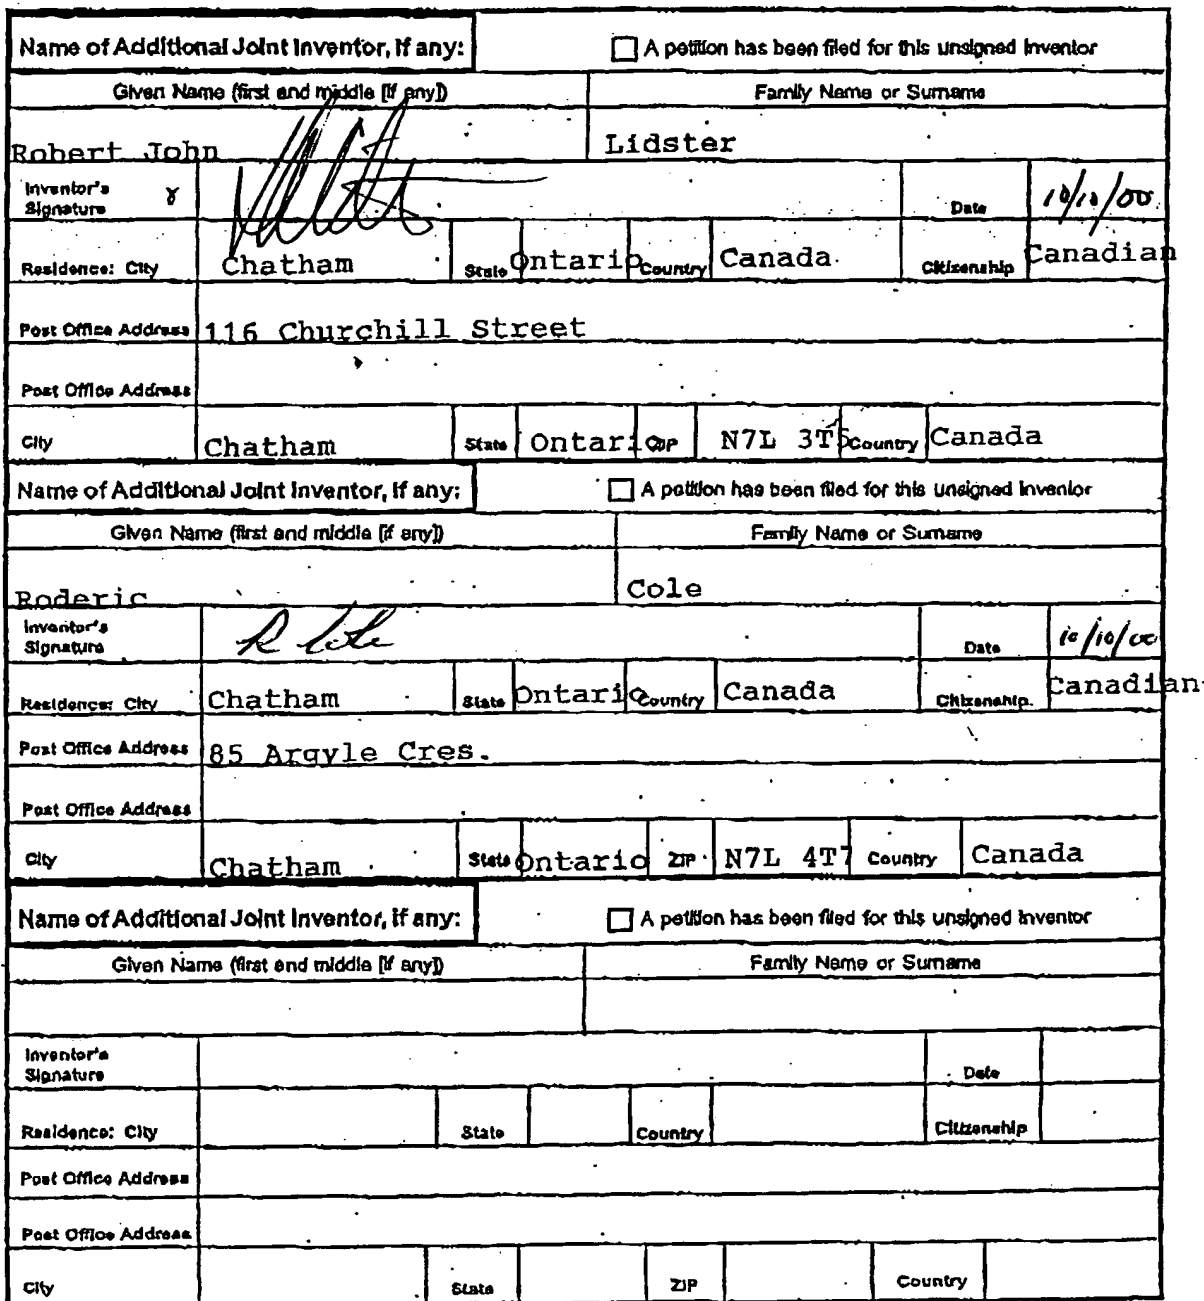 Name of Additional Joint Inventor, if any: A petition has been filed for this unsigned inventor
Given Name (first and middle [if any]) Family Name or Surname
Robert John Lidster
Inventor's Signature Date 10/10/00
Residence: City Chatham State Ontario Country Canada Citizenship Canadian
Post Office Address 116 Churchill Street
Post Office Address
City Chatham State Ontario ZIP N7L 3T5 Country Canada
Name of Additional Joint Inventor, if any: A petition has been filed for this unsigned inventor
Given Name (first and middle [if any]) Family Name or Surname
Roderic Cole
Inventor's Signature R Cole Date 10/10/00
Residence: City Chatham State Ontario Country Canada Citizenship. Canadian
Post Office Address 85 Argyle Cres.
Post Office Address
City Chatham State Ontario ZIP N7L 4T7 Country Canada
Name of Additional Joint Inventor, if any: A petition has been filed for this unsigned inventor
Given Name (first and middle [if any]) Family Name or Surname
Inventor's Signature Date
Residence: City State Country Citizenship
Post Office Address
Post Office Address
City State ZIP Country